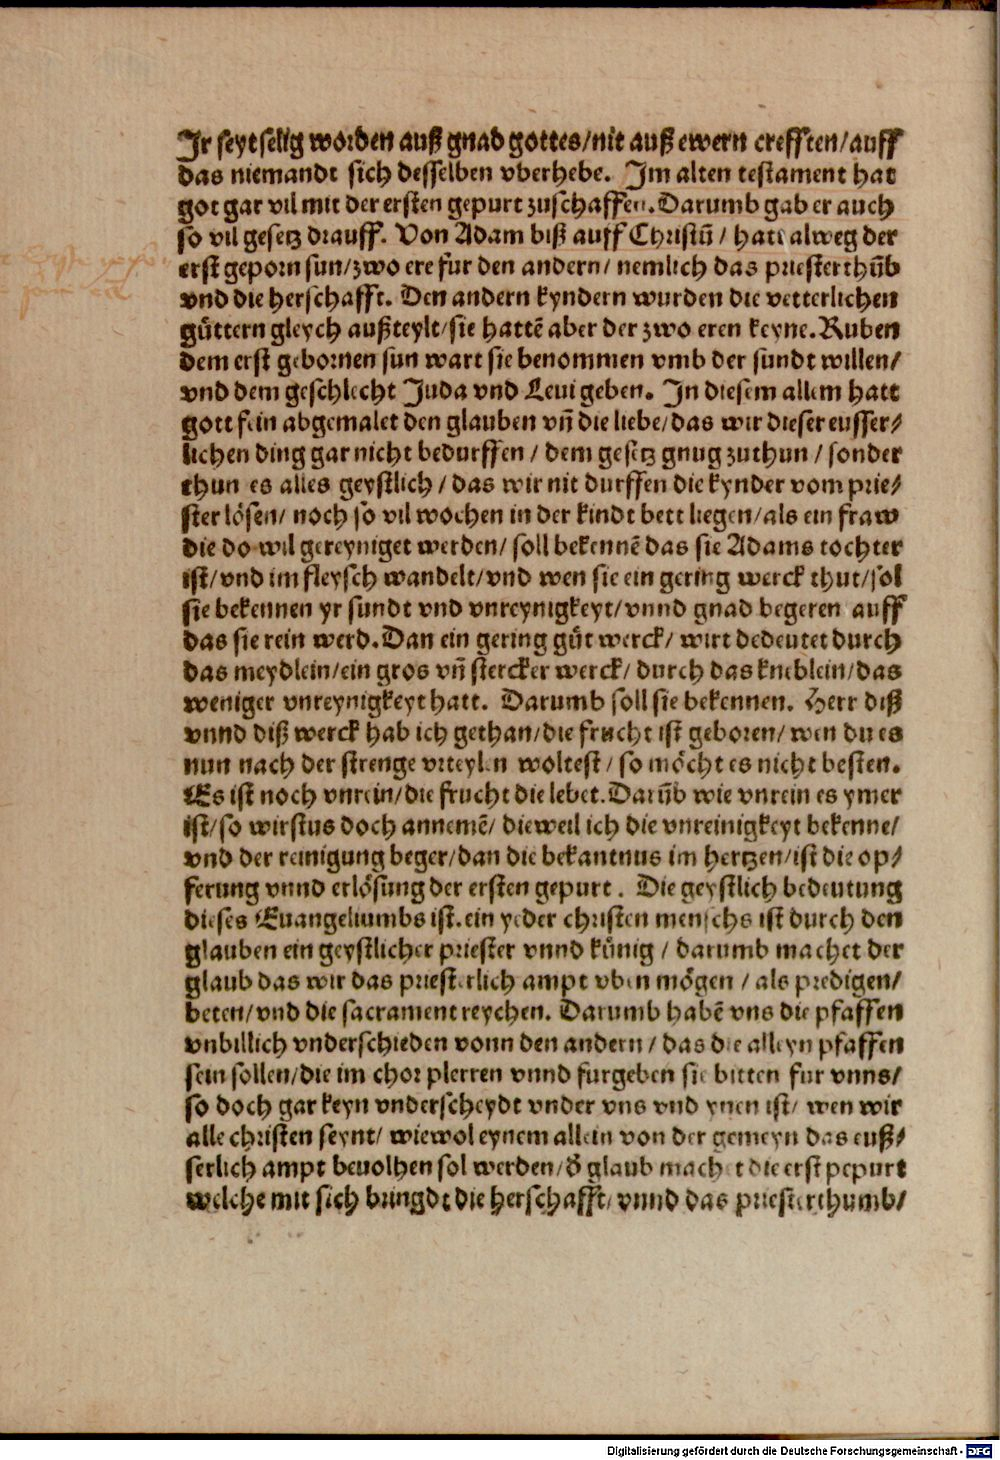 Jr seyt selig worden auß gnad gottes/nit auß ewern crefften/auff
das niemandt sich desselben vberhebe. Jm alten testament hat
got gar vil mit der ersten gepurt zuschaffen. Darumb gab er auch
so vil gesetz drauff. Von Adam biß auff Christū / hatt alweg der
erst geporn sun/zwo ere fur den andern/ nemlich das priesterthūb
vnd die herschafft. Den andern kyndern wurden die vetterlichen
güttern gleych außteylt/sie hattē aber der zwo eren keyne. Ruben
dem erst gebornen sun wart sie benommen vmb der sundt willen/
vnd dem geschlecht Juda vnd Leui geben. Jn diesem allem hatt
gott fein abgemalet den glauben vñ die liebe/das wir dieser eusser/
lichen ding gar nicht bedurffen / dem gesetz gnug zuthun / sonder
thun es alles geystlich / das wir nit durffen die kynder vom prie/
ster lösen/ noch so vil wochen in der kindt bett liegen/als ein fraw
die do wil gereyniget werden/ soll bekennē das sie Adams tochter
ist/vnd im fleysch wandelt/vnd wen sie ein gering werck thut/sol
sie bekennen yr sundt vnd vnreynigkeyt/vnnd gnad begeren auff
das sie rein werd. Dan ein gering gůt werck/ wirt bedeutet durch
das meydlein/ein gros vñ stercker werck/ durch das kneblein/das
weniger vnreynigkeyt hatt. Darumb soll sie bekennen. Herr diß
vnnd diß werck hab ich gethan/die frucht ist geboren/wen du es
nun nach der strenge vrteylen woltest/ so möcht es nicht besten.
Es ist noch vnrein/die frucht die lebet. Darūb wie vnrein es ymer
ist/so wirstus doch annemē/ dieweil ich die vnreinigkeyt bekenne/
vnd der reinigung beger/dan die bekantnus im hertzen/ist die op/
ferung vnnd erlösung der ersten gepurt. Die geystlich bedeutung
dieses Euangeliumbs ist. ein yeder christen menschs ist durch den
glauben ein geystlicher priester vnnd künig / darumb machet der
glaub das wir das priesterlich ampt vben mögen / als predigen/
beten/vnd die sacrament reychen. Darumb habē vns die pfaffen
vnbillich vnderschieden vonn den andern / das die alleyn pfaffen
sein sollen/die im chor plerren vnnd furgeben sie bitten fur vnns/
so doch gar keyn vnderscheydt vnder vns vnd ynen ist/ wen wir
alle christen seynt/ wiewol eynem allein von der gemeyn das euß/
serlich ampt beuolhen sol werden/ď glaub machet die erst pepurt
welche mit sich bringdt die herschafft/ vnnd das priesterthumb/
Digitalisierung gefördert durch die Deutsche Forschungsgemeinschaft - DFG